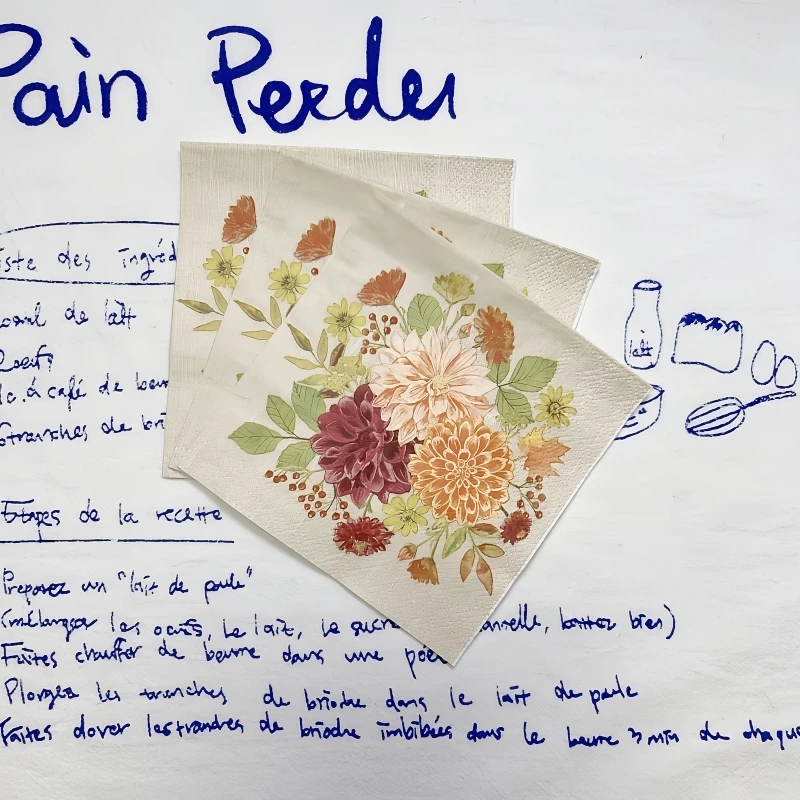 Pain Perdu
iste des ingréd
de lait
lait
oeufs
c. à café de beur
tranches de bri
Etapes de la recette
Préparez un "lait de poule"
(mélanger les oeufs, le lait, le sucre annelle, battez bien)
Faites chauffer de beurre dans une poê
Plongez les tranches de brioche dans le lait de poule
Faites dorer les tranches de brioche imbibées dans le beurre 3 min de chaque